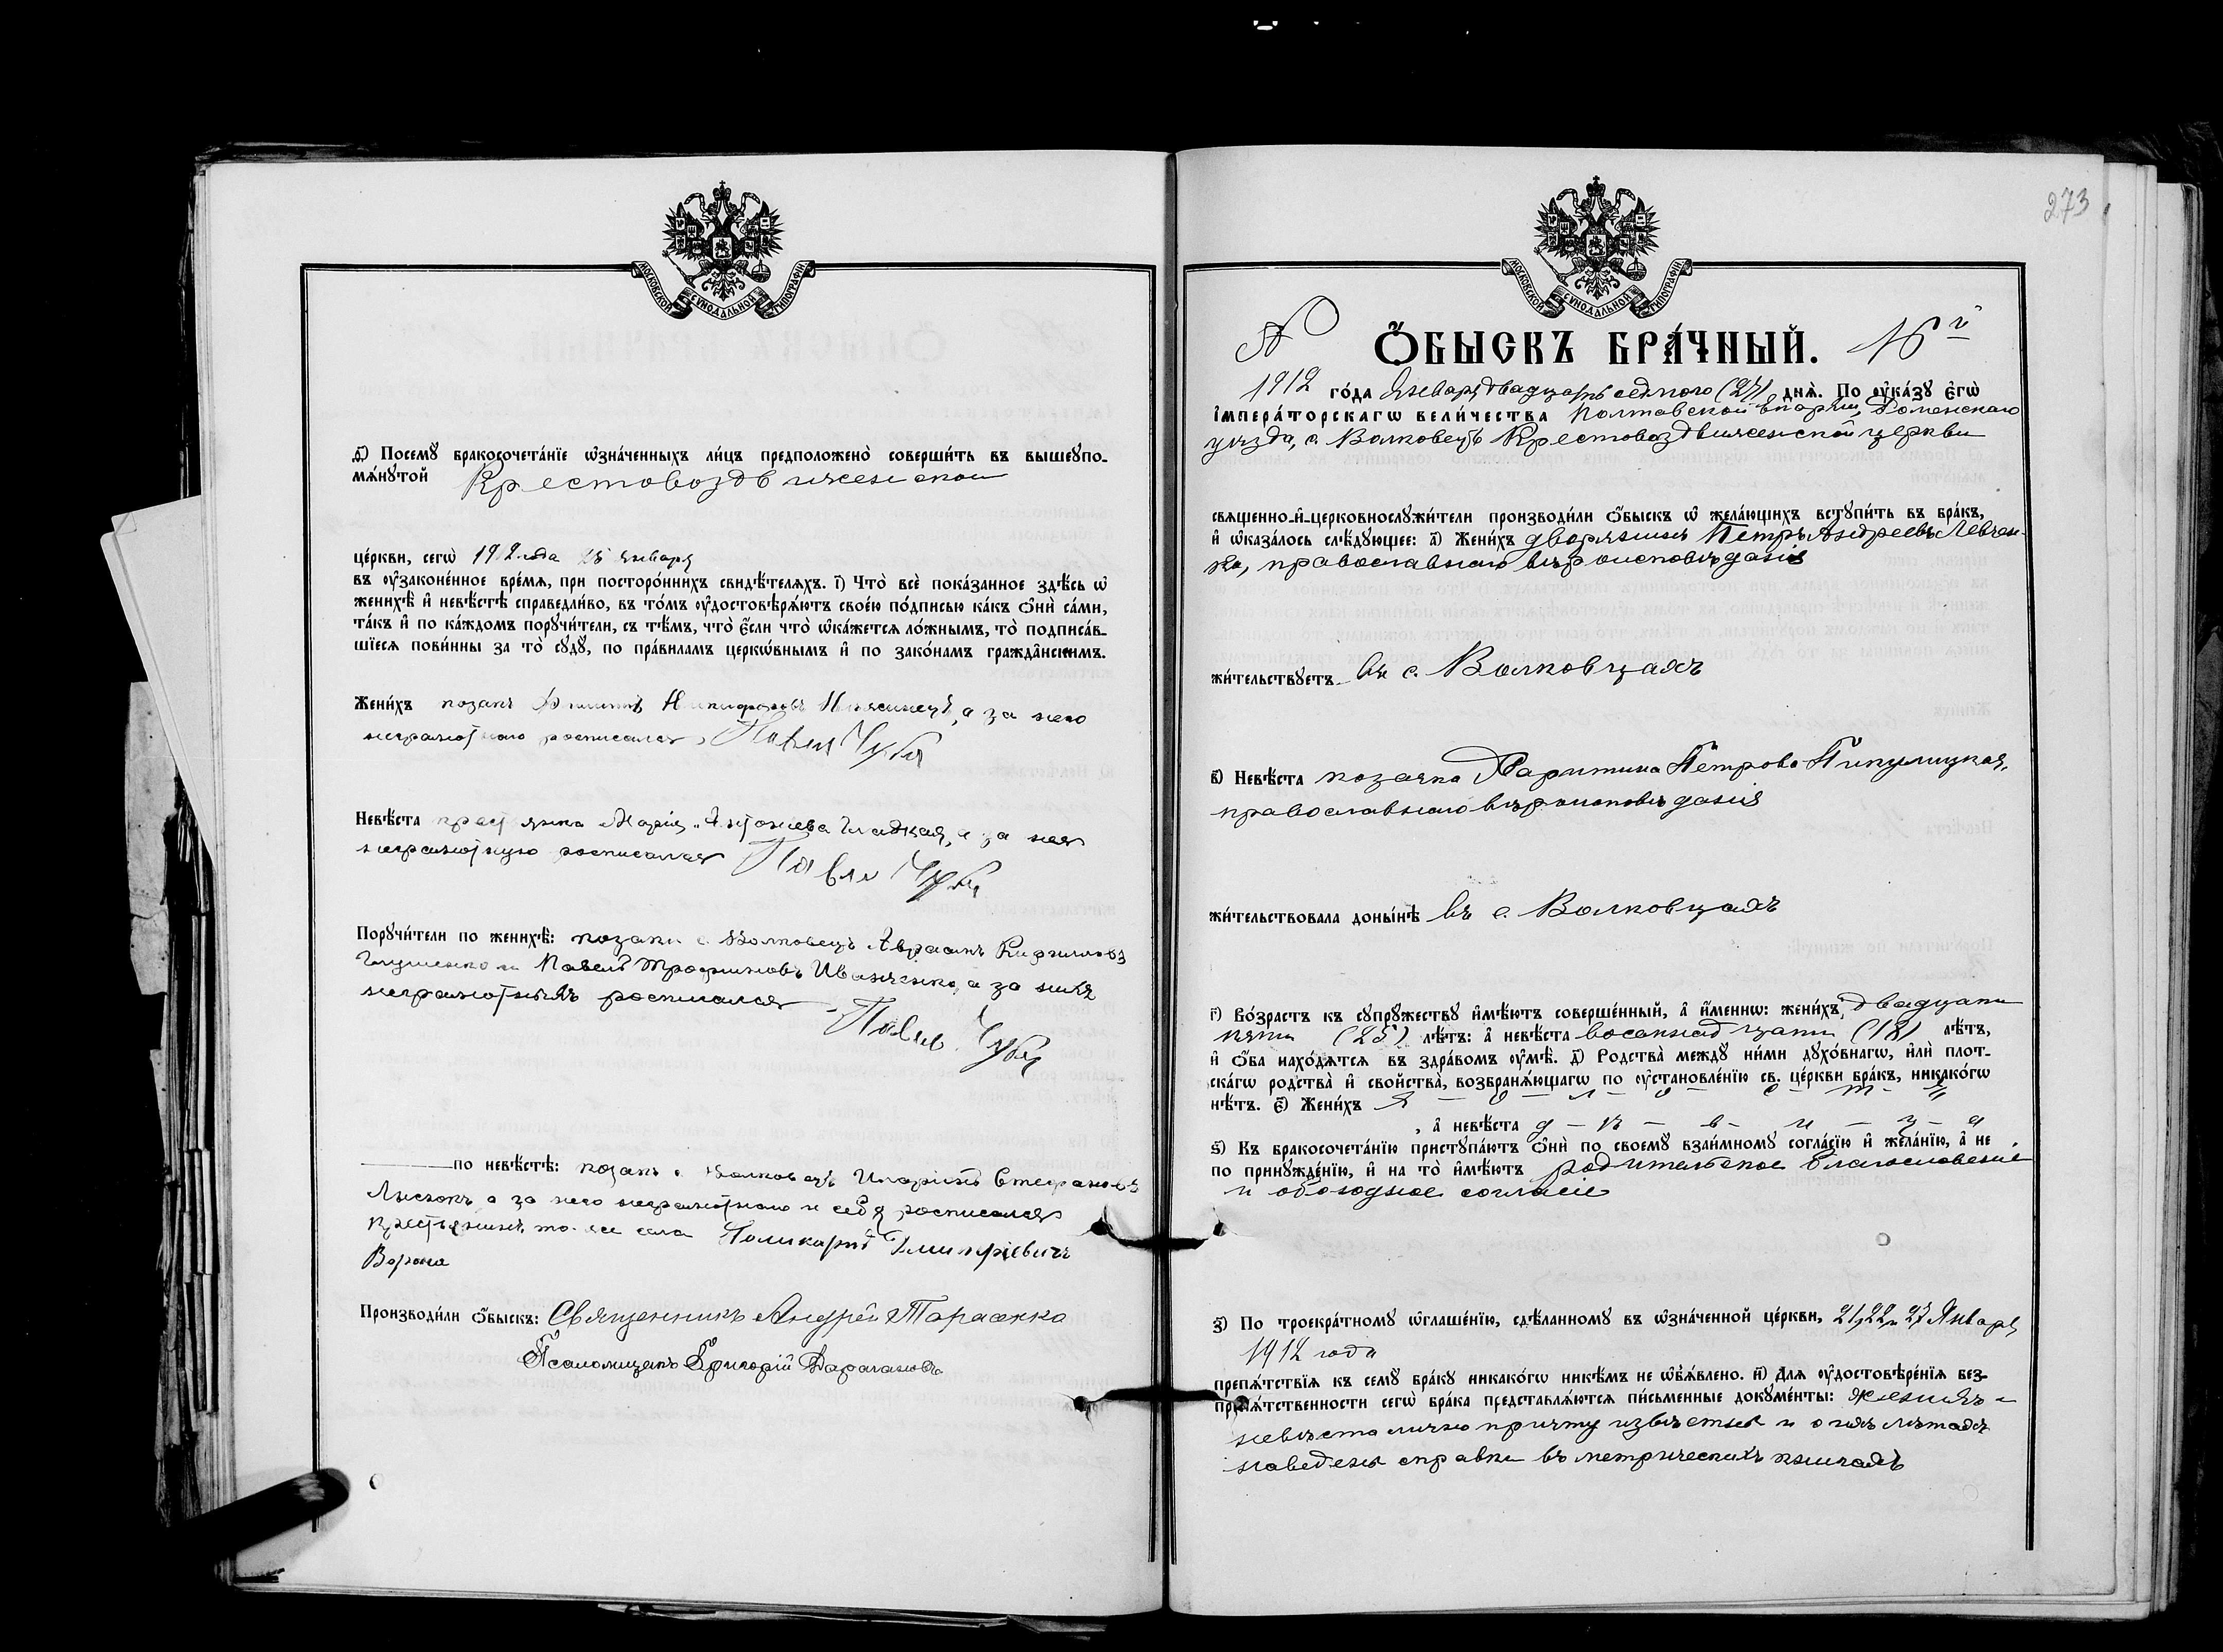 МОСКОВСКОЙ СѴНОДАЛЬНОЙ ТИПОГРАФІИ
д҃) Посемꙋ бракосочета́нїе ѡ҆зна́ченныхъ ли́цъ предположено̀ соверши́ть въ вышеупо-
мѧ́нꙋтой Крестовоздвиженской
це́ркви, сегѡ̀ 1912 года января
въ ᲂу҆законе́нное вре́мѧ, при посторо́ннихъ свидѣ́телѧхъ. і҃) Что̀ всѐ пока́занное здѣ́сь ѡ҆
женихѣ̀ и҆ невѣ́стѣ справедли́во, въ то́мъ ᲂу҆достовѣрѧ́ютъ свое́ю по́дписью ка́къ ѻ҆нѝ са́ми,
та́къ и҆ по ка́ждомъ порꙋчи́тели, съ тѣ́мъ, что̀ є҆́сли что̀ ѡ҆ка́жетсѧ ло́жнымъ, то̀ подписа́в-
шїесѧ пови́нны за то̀ сꙋдꙋ̀, по пра́виламъ церко́внымъ и҆ по зако́намъ гражда̑нскимъ.
Жени́хъ козакъ а за него
неграмотнаго росписался Павелъ Чуба
Невѣ́ста Марія Антонова Гладкая, а за нея
неграмотную росписался Павелъ Чуба
Порꙋчи́тели по женихѣ̀: козаки с. Волковецъ Авраамъ Кириловъ
и Павелъ Трофимовъ Иванченко, а за нихъ
неграмотныхъ росписался
Павелъ Чуба
по невѣ́стѣ: козакъ с. Волковецъ Стефановъ
а за него неграмотнаго и себя росписался
крестьянинъ того же села Поликарпъ Дмитріевичъ
Ворона
Производи́ли ѻ҆́быскъ: Священникъ Андрей Тарасенко
Псаломщикъ Григорій Дарагановъ
273
МОСКОВСКОЙ СѴНОДАЛЬНОЙ ТИПОГРАФІИ
Ѻ҆́БЫСКЪ БРА́ЧНЫЙ. 16й
1912 го́да Января двадцать седьмого (27) днѧ̀. По ᲂу҆ка́зꙋ є҆гѡ̀
і҆мпера́торскагѡ вели́чества Полтавской епархіи, Роменскаго
уѣзда, с. Волковецъ Крестовоздвиженской церкви
свѧщенно-и҆-церковнослꙋжи́тели производи́ли ѻ҆́быскъ ѡ҆ жела́ющихъ встꙋпи́ть въ бра́къ,
и҆ ѡ҆каза́лось слѣ́дꙋющее: а҃) Жени́хъ дворянинъ Петръ Андреевъ Левчен-
ко, православнаго вѣроисповѣданія
жи́тельствꙋетъ въ с. Волковцахъ
в҃) Невѣ́ста козачка Харитина Петрова Пикулицкая,
православнаго вѣроисповѣданія
жи́тельствовала доны́нѣ въ с. Волковцахъ
г҃) Во́зрастъ къ сꙋпрꙋ́жествꙋ и҆мѣ́ютъ соверше́нный, а҆ и҆́меннѡ: жени́хъ двадцати
пяти (25) лѣ́тъ: а҆ невѣ́ста восемнадцати (18) лѣ́тъ,
и҆ ѻ҆́ба нахо́дѧтсѧ въ здра́вомъ ᲂу҆мѣ̀. д҃) Родства̀ междꙋ ни́ми дꙋхо́внагѡ, и҆лѝ плот-
ска́гѡ родства̀ и҆ сво́йства, возбранѧ́ющагѡ по ᲂу҆становле́нїю св. це́ркви бра́къ, никако́гѡ
нѣ́тъ. є҃) Жени́хъ х - о - л - о - с - т - ъ
, а҆ невѣ́ста д - ѣ - в - и - ц - а
ѕ҃) Къ бракосочета́нїю пристꙋпа́ютъ ѻ҆нѝ по своемꙋ̀ взаи́мномꙋ согла́сїю и҆ жела́нїю, а҆ не
по принꙋжде́нїю, и҆ на то̀ и҆мѣ́ютъ родительское благословеніе
и обоюдное согласіе
з҃) По троекра́тномꙋ ѡ҆глаше́нїю, сдѣ́ланномꙋ въ ѡ҆зна́ченной це́ркви, 21, 22 и 27 Января
1912 года
препѧ́тствїѧ къ семꙋ̀ бра́кꙋ никако́гѡ никѣ́мъ не ѡ҆б̾ѧ́влено. и҃) Длѧ ᲂу҆достовѣре́нїѧ без-
препѧ́тственности сегѡ̀ бра́ка представлѧ́ютсѧ пи́сьменные докꙋме́нты: женихъ и
невѣста лично причту извѣстны и о ихъ лѣтахъ
наведены справки въ метрическихъ книгахъ